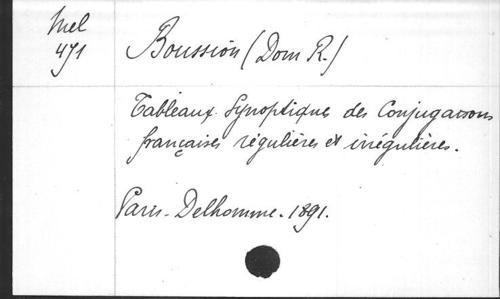 Mel
471
Boussion (Dom R.)
Tableaux Synoptiques des Conjugaisons
françaises régulières et irrégulières.
Paris - Delhomme. 1891.